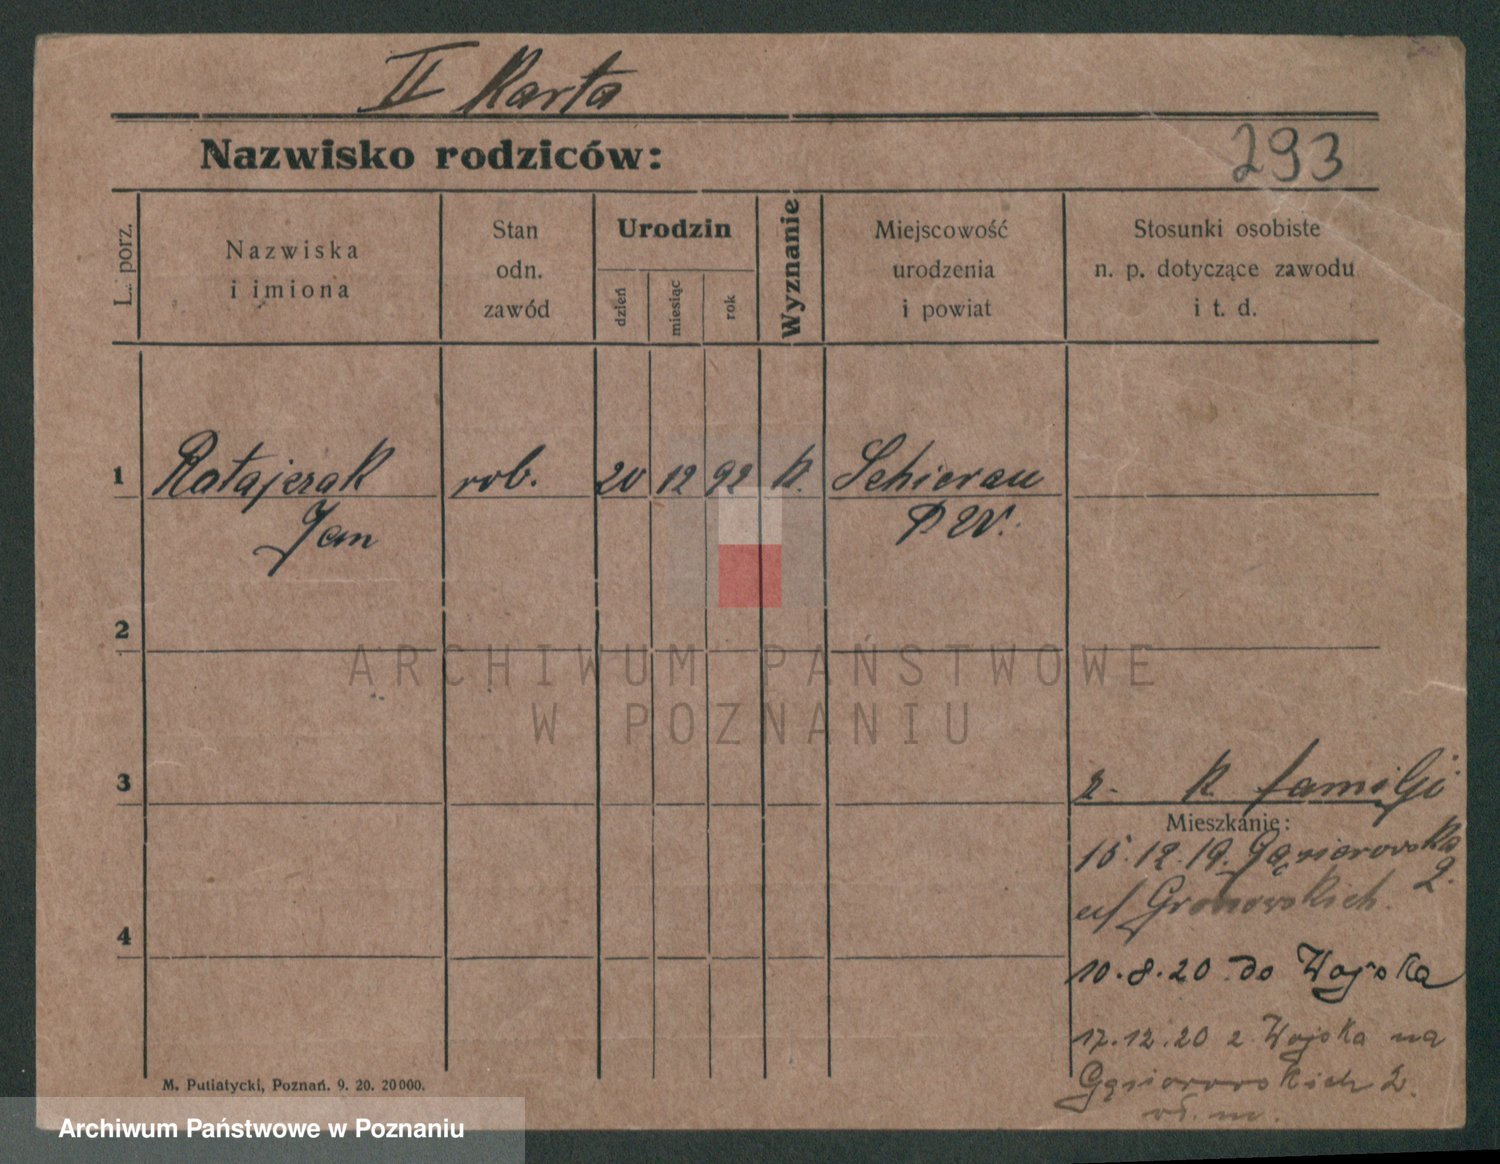 II Karta
Nazwisko rodziców:
293
L. porz.
Nazwiska
i imiona
Stan
odn.
zawód
Urodzin
dzień
miesiąc
rok
Wyznanie
Miejscowość
urodzenia
i powiat
Stosunki osobiste
n. p. dotyczące zawodu
i t. d.
1
Ratajczak rob. 20 12 92 k. Schierau
Jan P.W.
2
3
z. k familji
Mieszkanie:
15.12.19. Gąsiorowska
2.
u/ Gronowskich.
4
10.8.20 do Wojska
17.12.20 z Wojska na
Gąsiorowskich 2.
M. Putiatycki, Poznań. 9. 20. 20000.
ARCHIWUM PAŃSTWOWE
W POZNANIU
Archiwum Państwowe w Poznaniu